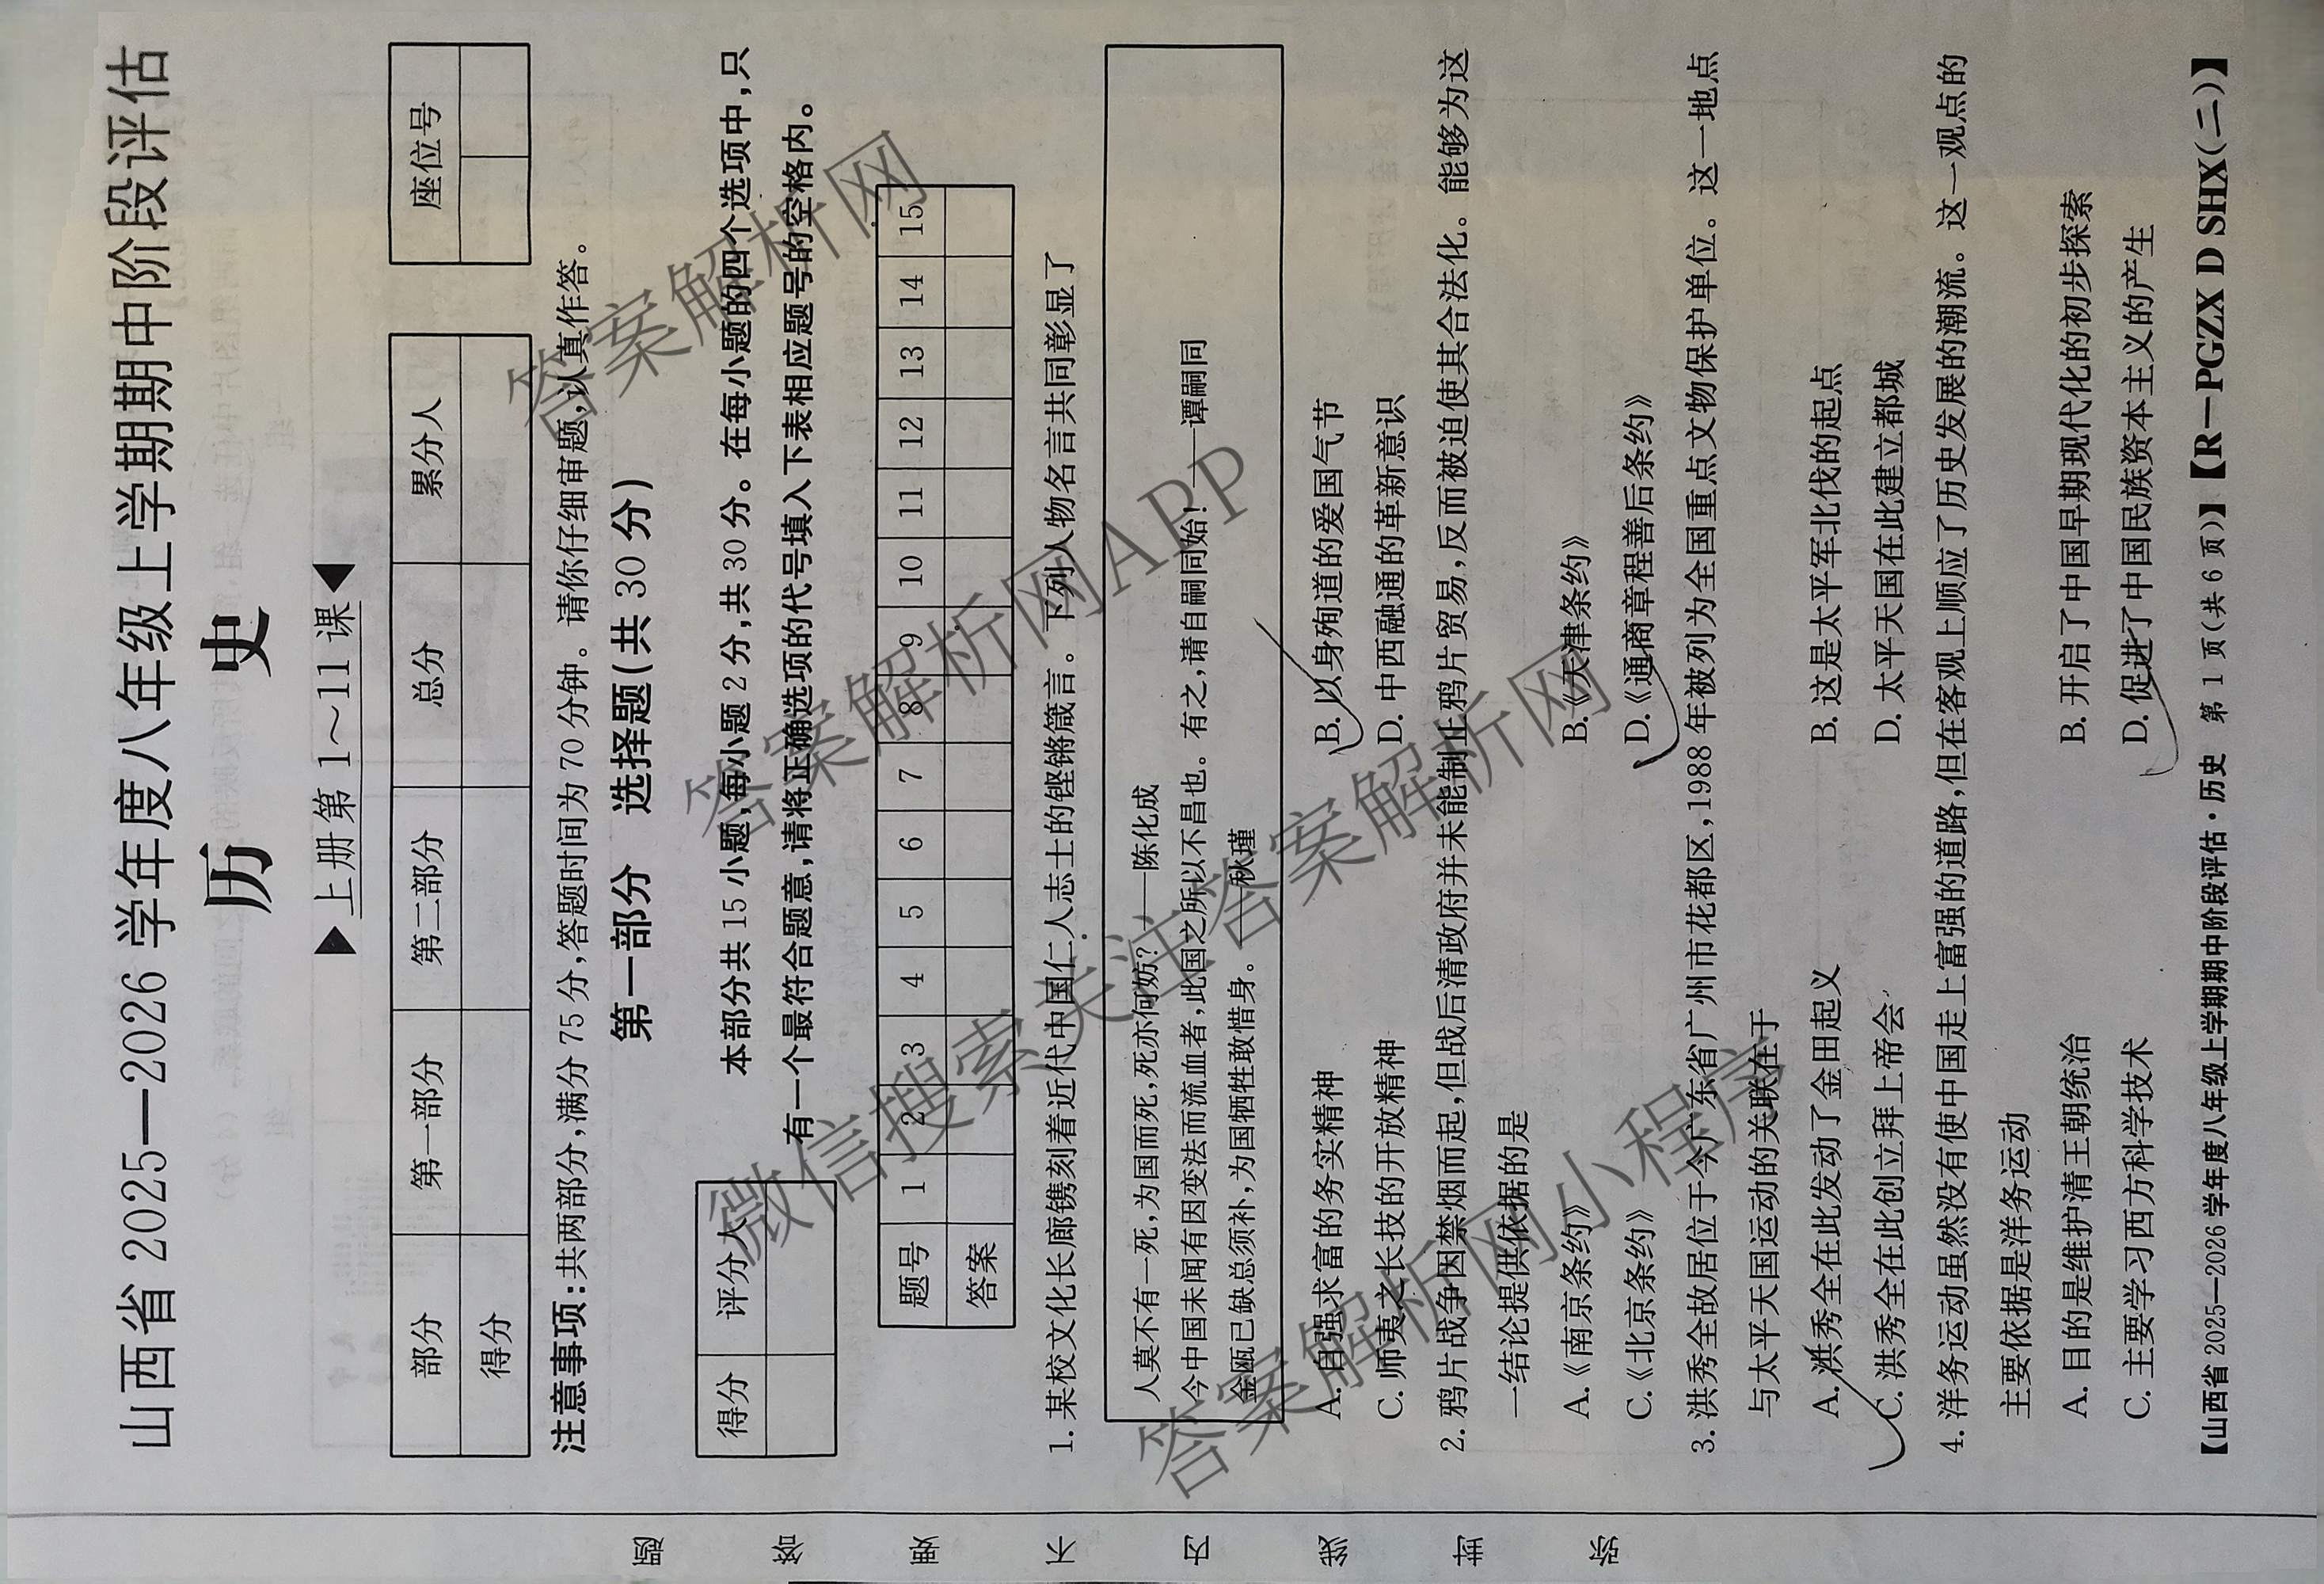 山西省 2025—2026 学年度八年级上学期期中阶段评估
历 史
▶上册第 1～11 课◀
部分 第一部分 第二部分 总分 累分人 座位号
得分
注意事项：共两部分，满分 75 分，答题时间为 70 分钟。请你仔细审题，认真作答。
第一部分 选择题（共 30 分）
得分 评分人
本部分共 15 小题，每小题 2 分，共 30 分。在每小题的四个选项中，只
有一个最符合题意，请将正确选项的代号填入下表相应题号的空格内。
题号 1 2 3 4 5 6 7 8 9 10 11 12 13 14 15
答案
1. 某校文化长廊镌刻着近代中国仁人志士的铿锵箴言。下列人物名言共同彰显了
人莫不有一死，为国而死，死亦何妨？——陈化成
今中国未闻有因变法而流血者，此国之所以不昌也。有之，请自嗣同始！——谭嗣同
金瓯已缺总须补，为国牺牲敢惜身。——秋瑾
A. 自强求富的务实精神 B. 以身殉道的爱国气节
C. 师夷之长技的开放精神 D. 中西融通的革新意识
2. 鸦片战争因禁烟而起，但战后清政府并未能制止鸦片贸易，反而被迫使其合法化。能够为这
一结论提供依据的是
A.《南京条约》 B.《天津条约》
C.《北京条约》 D.《通商章程善后条约》
3. 洪秀全故居位于今广东省广州市花都区，1988 年被列为全国重点文物保护单位。这一地点
与太平天国运动的关联在于
A. 洪秀全在此发动了金田起义 B. 这是太平军北伐的起点
C. 洪秀全在此创立拜上帝会 D. 太平天国在此建立都城
4. 洋务运动虽然没有使中国走上富强的道路，但在客观上顺应了历史发展的潮流。这一观点的
主要依据是洋务运动
A. 目的是维护清王朝统治 B. 开启了中国早期现代化的初步探索
C. 主要学习西方科学技术 D. 促进了中国民族资本主义的产生
【山西省 2025—2026 学年度八年级上学期期中阶段评估·历史 第 1 页（共 6 页）】【R－PGZX D SHX（二）】
答案解析网
答案解析网APP
微信搜索关注答案解析网
答案解析网小程序